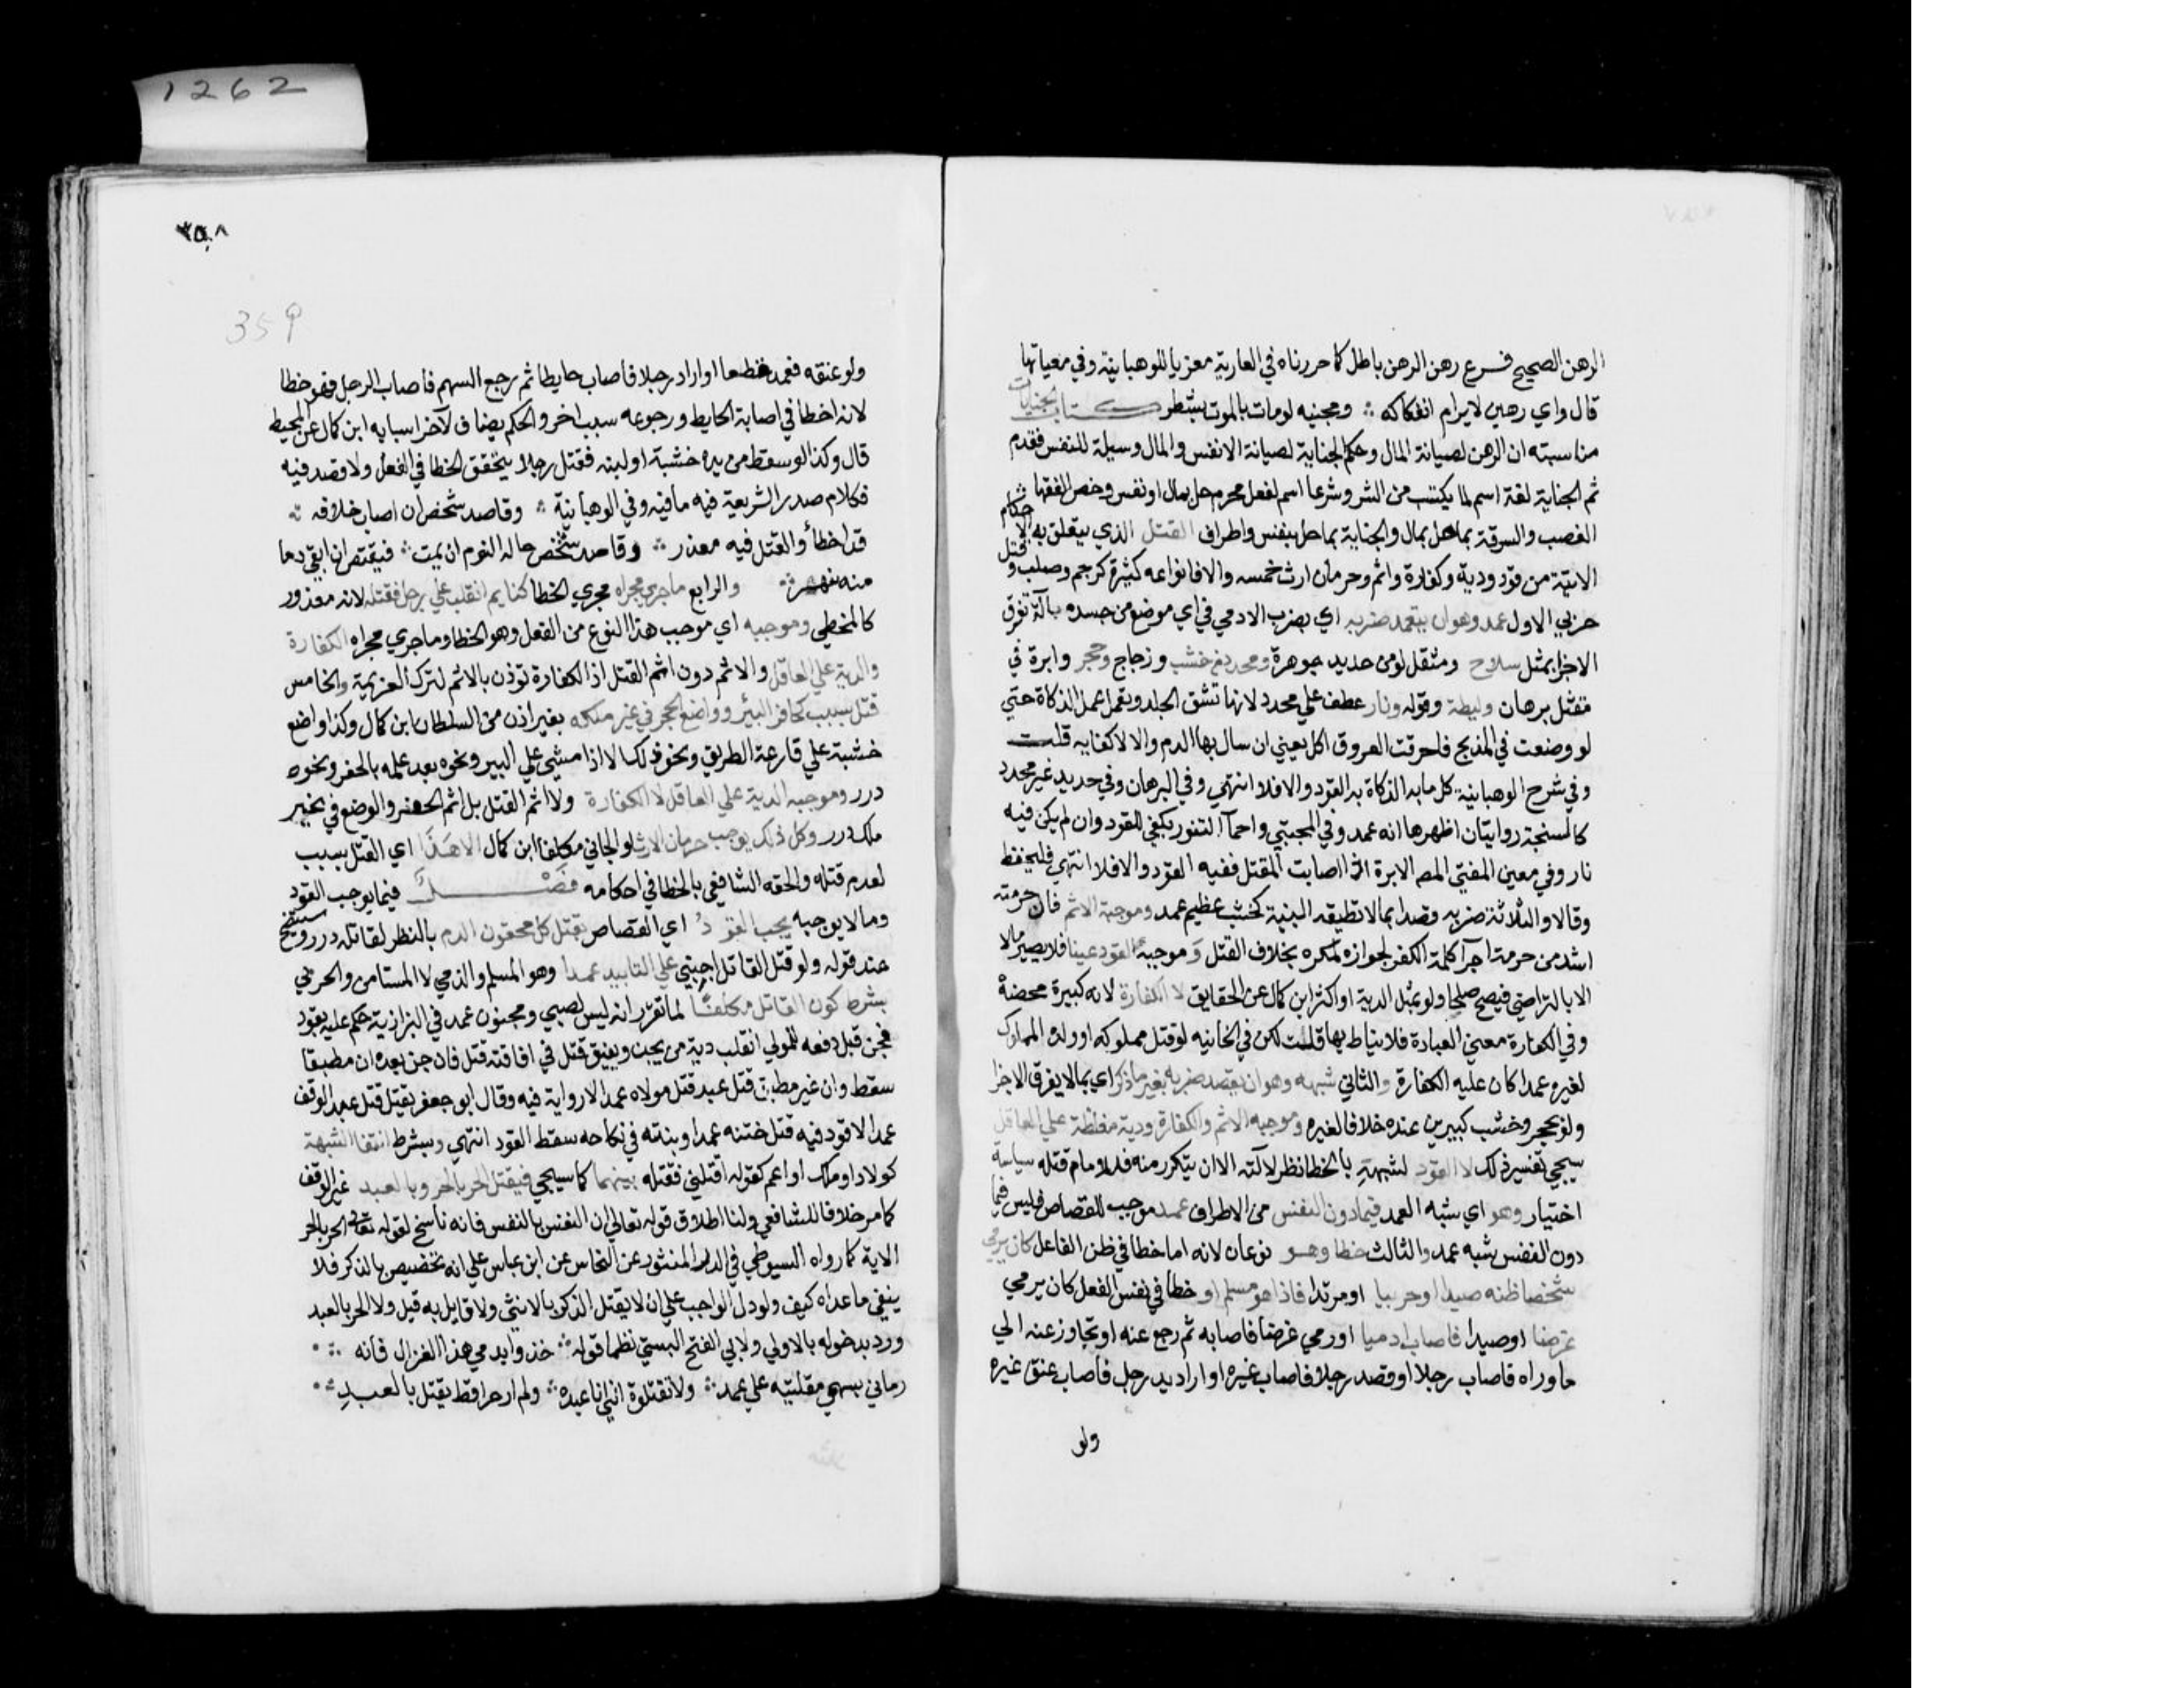 1262
الرهن الصحيح فـــرع رهن الرهن باطل كما حررناه في العارية معزيا للوهبانية وفي معياتها
قال واي رهين لا يرام انفكاكه ∴ ومجنيه لومات بالموت يشطر كـــتاب الجنايات
مناسبته ان الرهن لصيانة المال وحكم الجناية لصيانة الانفس والمال وسيلة للنفس فقدم
ثم الجناية لغة اسم لما يكتسب من الشر وشرعا اسم لفعل محرم حل بمال او نفس وخص الفقها
الغصب والسرقة بما حل بمال والجناية بما حل بنفس واطراف القتل الذي يتعلق به الاحكام
الاتية من قود ودية وكفارة واثم وحرمان ارث خمسه والا فانواعه كثيرة كرجم وصلب وقتل
حربي الاول عمد وهو ان يتعمد ضربه اي بضرب الادمي في اي موضع من جسده بآلة تفرق
الاجزا بمثل سلاح ومثقل لو من حديد جوهرة ومحدد من خشب وزجاج وحجر وابرة في
مقتل برهان وليطة وقوله ونار عطف علي محدد لانها تشق الجلد وتعمل عمل الذكاة حتي
لو وضعت في المذبح فاحرقت العروق اكل يعني ان سال بها الدم والا لا كفايه قلـت
وفي شرح الوهبانية كل ما به الذكاة به القود والا فلا انتهي وفي البرهان وفي حديد غير محدد
كالسنجة روايتان اظهرها انه عمد وفي المجتبي واحماء التنور يكفي للقود وان لم يكن فيه
نار وفي معين المفتي للمص الابرة اذا اصابت المقتل ففيه القود والا فلا انتهي فليحفظ
وقالا والثلاثة ضربه قصدا بما لا تطيقه البنية كخشب عظيم عمد وموجبه الاثم فان حرمته
اشد من حرمة اجرآ كلمة الكفر لجوازه لمكره بخلاف القتل وَ موجبه القود عينا فلا يصير مالا
الا بالتراضي فيصح صلحا ولو بمثل الدية او اكثر ابن كمال عن الحقايق لا الكفارة لانه كبيرة محضة
وفي الكفارة معني العبادة فلا يناط بها قلـت لكن في الخانيه لو قتل مملوكه او ولده المملوك
لغيره عمدا كان عليه الكفارة والثاني شبهه وهو ان يقصد ضربه بغير ما ذكر اي بما لا يفرق الاجزا
ولو بحجر وخشب كبيرين عنده خلافا لغيره وموجبه الاثم والكفارة ودية مغلظة علي العاقل
سيجي تفسير ذلك لا القود لشبهةِ بالخطا نظرا لآلته الا ان يتكرر منه فللامام قتله سياسة
اختيار وهو اي شبه العمد فيما دون النفس من الاطراف عمـد موجب للقصاص فليس فيما
دون النفس شبه عمد والثالث خطا وهـو نوعان لانه اما خطا في ظن الفاعل كان يرمي
شخصا ظنه صيدا او حربيا او مرتدا فاذا هو مسلم او خطأ في نفس الفعل كان يرمي
غرضا او صيدا فاصاب ادميا او رمي غرضا فاصابه ثم رجع عنه او تجاوز عنه الي
ما وراه فاصاب رجلا او قصد رجلا فاصاب غيره او اراد يد رجل فاصاب عنق غيره
ولو
٣٥٨
359
ولو عنقه فعمد قطعا او اراد رجلا فاصاب حايطا ثم رجع السهم فاصاب الرجل فهو خطا
لانه اخطا في اصابة الحايط ورجوعه سبب اخر والحكم يضاف لآخر اسبابه ابن كمال عن المحيط
قال وكذا لو سقط من يده خشبة او لبنه فقتل رجلا يتحقق الخطا في الفعل ولا قصد فيه
فكلام صدر الشريعة فيه ما فيه وفي الوهبانية ∴ وقاصد شخص ان اصاب خلافه ∴
قد اخطأ والقتل فيه معذر ∴ وقاصد شخص حالة النوم ان يمت ∴ فيقتص ان ابقي دما
منه ينهر ∴ والرابع ما جري مجراه مجري الخطا كنايم انقلب علي رجل فقتله لانه معذور
كالمخطي وموجبه اي موجب هذا النوع من الفعل وهو الخطا وما جري مجراه الكفارة
والدية علي العاقل والاثم دون اثم القتل اذ الكفارة توذن بالاثم لترك العزيمة والخامس
قتل بسبب كحافر البئر وواضع الحجر في غير ملكه بغير اذن من السلطان ابن كمال وكذا واضع
خشبة علي قارعة الطريق ونحو ذلك الا اذا مشي علي البير ونحوه بعد علمه بالحفر ونحوه
درر وموجبه الدية علي العاقل لا الكفارة ولا اثم القتل بل اثم الحفر والوضع في غير
ملك درر وكل ذلك يوجب حرمان الارث لو الجاني مكلفا ابن كمال الا هَـذَا اي القتل بسبب
لعدم قتله والحقه الشافعي بالخطا في احكامه فصـــل فيما يوجب القود
وما لا يوجبه يجب القودُ اي القصاص بقتل كل محقون الدم بالنظر لقاتله درر وسيتضح
عند قوله ولو قتل القاتل اجنبي علي التابيد عمـدا وهو المسلم والذمي لا المستامن والحربي
بشرط كون القاتل مكلفًا لما تقرر انه ليس لصبي ومجنون عمد في البزازية حكم عليه بقود
فجن قبل دفعه للولي انقلب دية من يجن ويفيق قتل في افاقته قتل فان جن بعده ان مطبقا
سقط وان غير مطبق قتل عبد قتل مولاه عمدا لا رواية فيه وقال ابو جعفر يقتل قتل عبد الوقف
عمدا لا قود فيه قتل ختنه عمدا وبنته في نكاحه سقط القود انتهي وبشرط انتفا الشبهة
كولاد او ملك او اعم كقوله اقتلني فقتله بينهما كما سيجي فيقتل الحر بالحر وبالعبد غير الوقف
كما مر خلافا للشافعي ولنا اطلاق قوله تعالي ان النفس بالنفس فانه ناسخ لقوله تعالي الحر بالحر
الاية كما رواه السيوطي في الدر المنثور عن النحاس عن ابن عباس علي انه تخصيص بالذكر فلا
ينفي ما عداه كيف ولو دل لوجب علي ان لا يقتل الذكر بالانثي ولا قايل به قيل ولا الحر بالعبد
ورد بدخوله بالاولي ولابي الفتح البستي نظما قوله ∴ خذوا بدمي هذا الغزال فانه ∴
رماني بسهمي مقلتيه علي عمد ∴ ولا تقتلوه انني انا عبده ∴ ولم ار حرا قط يقتل بالعبـدِ ∴